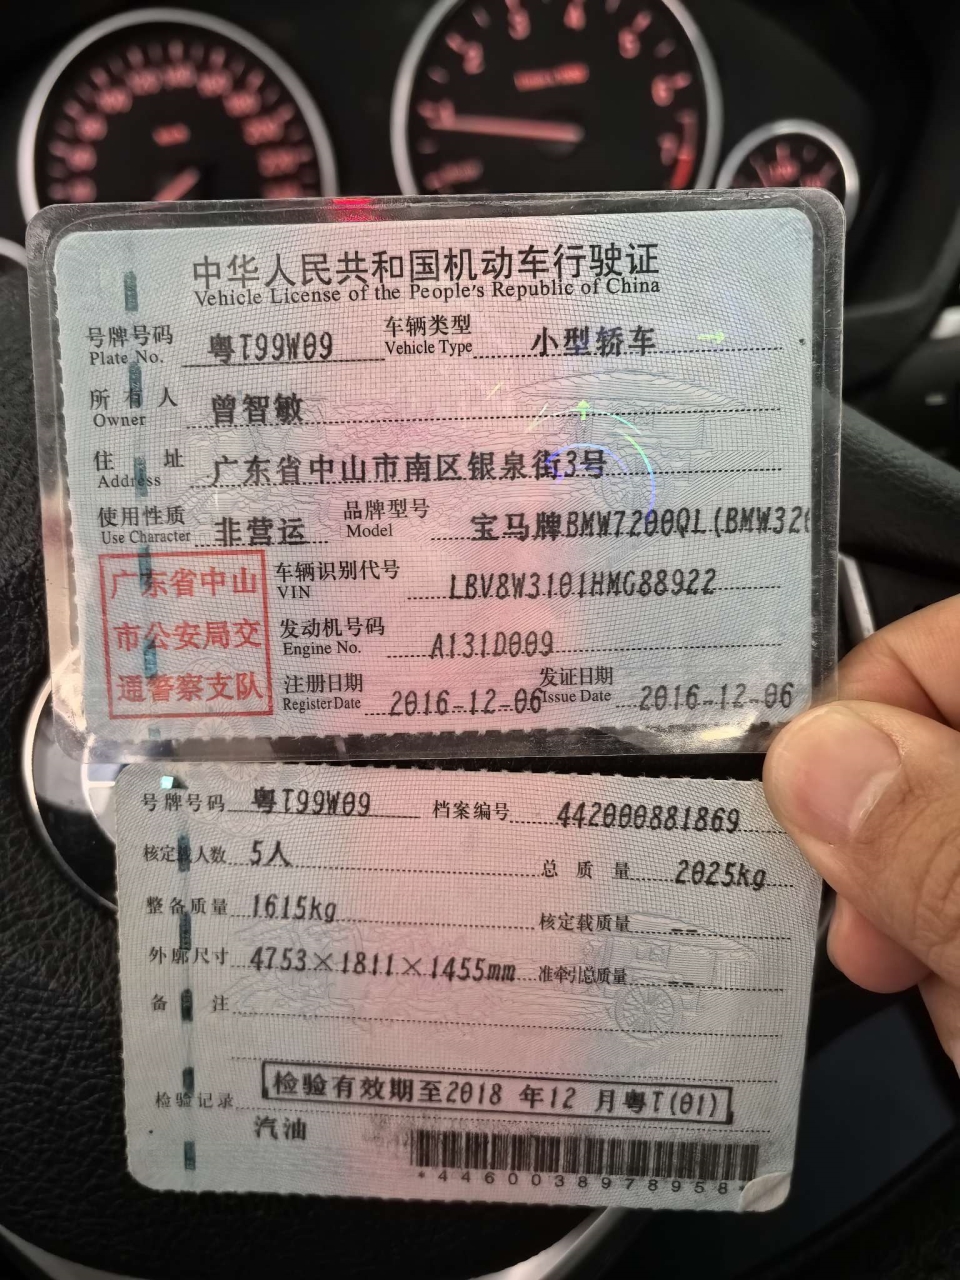 中华人民共和国机动车行驶证
Vehicle License of the People's Republic of China
号牌号码 粤T99W09 车辆类型 小型轿车
Plate No. Vehicle Type
所有人 曾智敏
Owner
住址 广东省中山市南区银泉街3号
Address
使用性质 非营运 品牌型号 宝马牌BMW7200QL(BMW320
Use Character Model
广东省中山
市公安局交
通警察支队
车辆识别代号 LBV8W3101HMG88922
VIN
发动机号码 A131D009
Engine No.
注册日期 2016-12-06 发证日期 2016-12-06
Register Date Issue Date
号牌号码 粤T99W09 档案编号 442000881869
核定载人数 5人 总质量 2025kg
整备质量 1615kg 核定载质量 --
外廓尺寸 4753×1811×1455mm 准牵引总质量 --
备注
检验记录 检验有效期至2018 年12 月粤T(01)
汽油
*4460038978958*